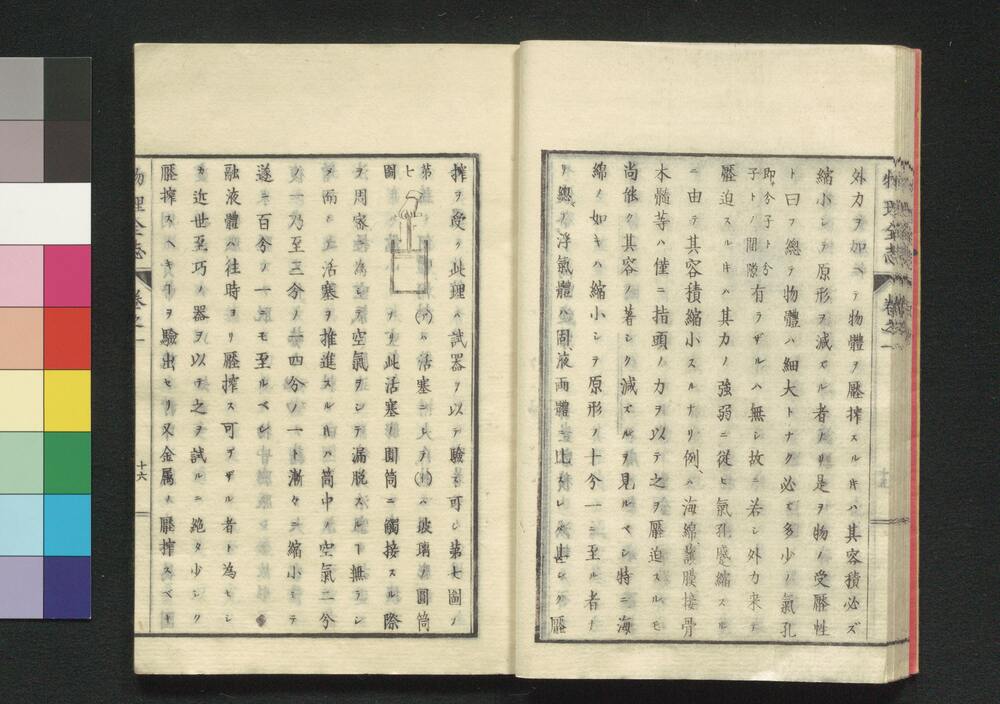 外力ヲ加ヘテ物體ヲ壓搾スルキハ其容積必ズ
縮小シテ原形ヲ減ズル者ナリ是ヲ物ノ受壓性
ト曰フ總テ物體ハ細大トナク必ズ多少ノ氣孔
即分子ト分子トノ間隙有ラザルハ無シ故ニ若シ外力來テ
壓迫スルキハ其力ノ強弱ニ從ヒ氣孔蹙縮スル
ニ由テ其容積縮小スルナリ例ハ海綿護膜接骨
木髄等ハ僅ニ指頭ノ力ヲ以テ之ヲ壓迫スルモ
尚能ク其容ノ著シク減ズルヲ見ルベシ特ニ海
綿ノ如キハ縮小シテ原形ノ十分一ニ至ル者ナ
リ總テ浮氣體ハ固液兩體ニ比スレハ甚シク壓
物理全志 卷之一
搾ヲ受ク此理ハ試器ヲ以テ驗ス可シ第七圖ノ
第七圖
ハ活塞ニシテ ハ玻璃ノ圓筒
ナリ此活塞ノ圓筒ニ觸接スル際
ヲ周密ニ為シテ空氣ヲシテ漏脱スルヿ無ラシ
メ而シテ活塞ヲ推進スルキハ筒中ノ空氣二分
ノ一乃至三分ノ一四分ノ一ト漸々ニ縮小シテ
遂ニ百分ノ一ニモ至ルベシ
融液體ハ往時ヨリ壓搾ス可ラザル者ト為セシ
カ近世至巧ノ器ヲ以テ之ヲ試ルニ絶タ少シク
壓搾スヘキヿヲ驗出セリ又金属ノ壓搾スベキ
物理全志 卷之一 十六